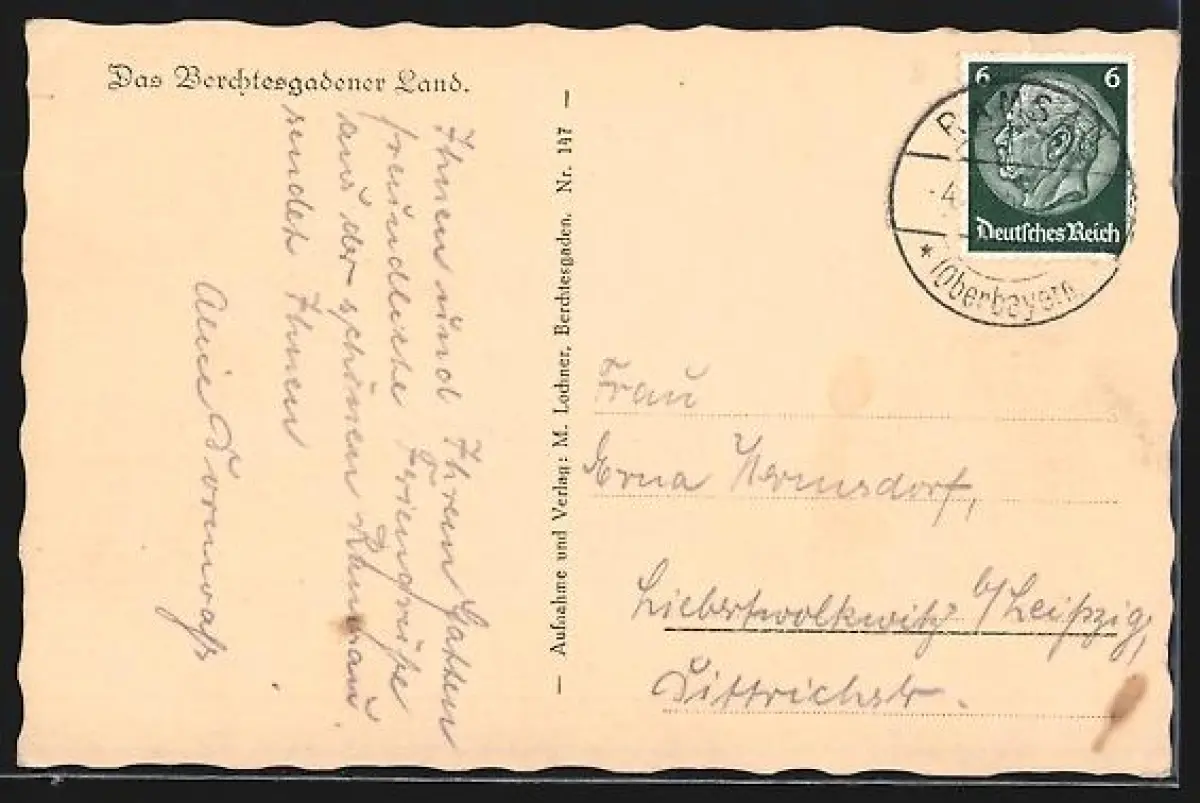 Das Berchtesgadener Land.
Ihnen und Ihrem Gatten
freundliche Feriengrüße
aus der schönen Ramsau
sendet Ihnen
— Aufnahme und Verlag: M. Lochner, Berchtesgaden. Nr. 147 —
6 6
Deutsches Reich
(Oberbayern
Frau
Erna Hermsdorf,
Liebertwolkwitz b/Leipzig,
Dittrichstr.